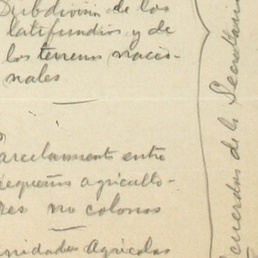 Subdivision de los
latifundios y de
los terrenos nacio-
nales
Parcelamiento entre
pequeños agriculto-
res no colonos
Unidades Agrícolas
Acuerdos de la Secretaria